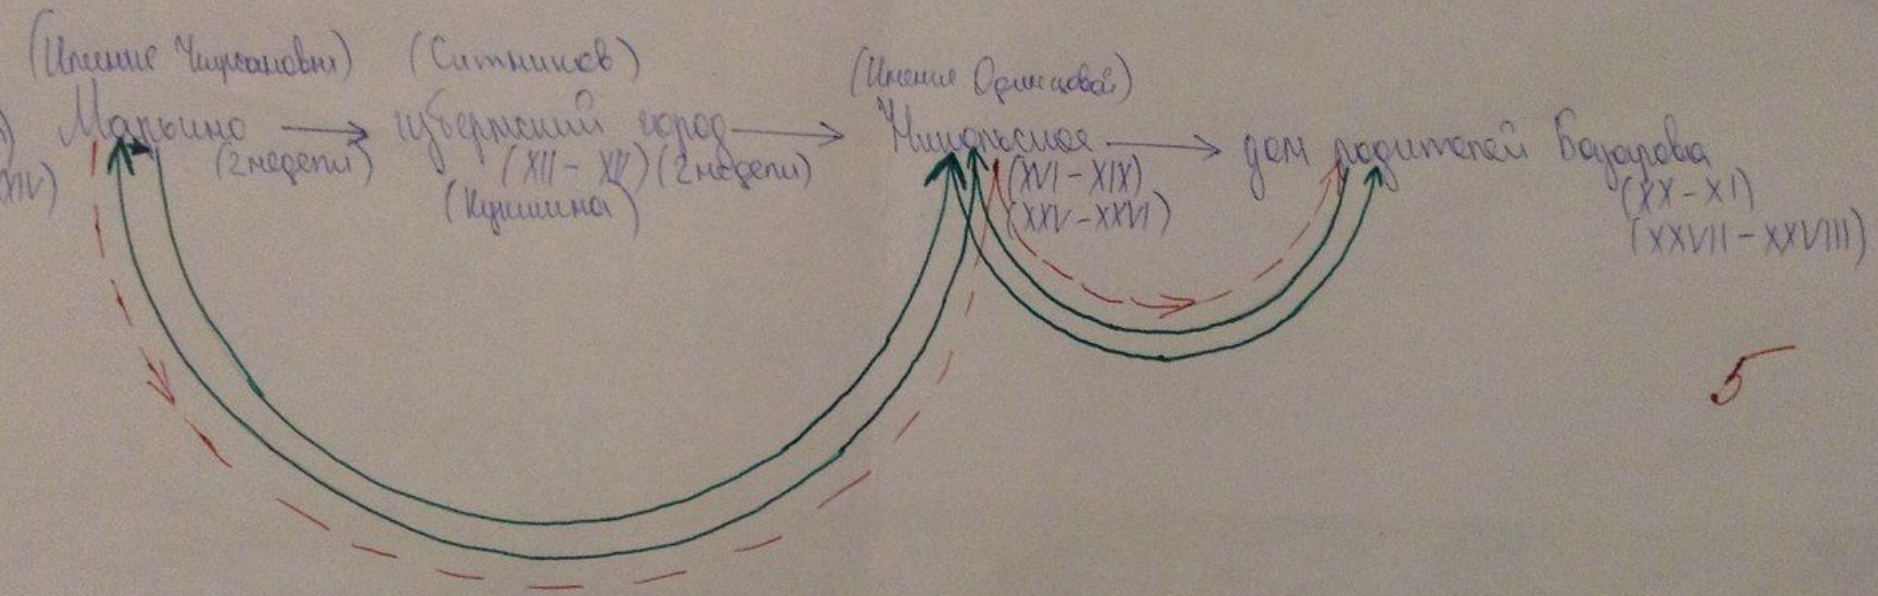 (Имение Кирсановых) (Ситников) (Имение Одинцовой)
Марьино → губернский город → Никольское → дом родителей Базарова
(2 недели) (XII – XV) (2 недели) (XVI – XIX) (XX – XI)
XIV) (Кукшина) (XXV – XXVI) (XXVII – XXVIII)
5